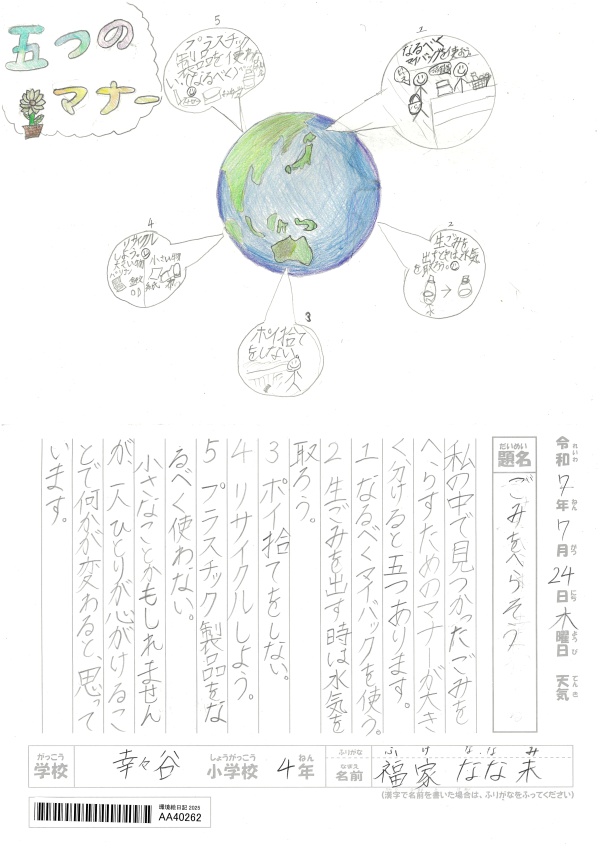 五つの
マナー
5
プラスチック
製品を
なるべく
1
なるべく
マイバッグを使おう
2
生ごみを
出すときは水気
を取ろう。
水
3
ポイ捨て
をしない
4
リサイクル
しよう。
大きい物
小さい物
紙
令和7年7月24日木曜日 天気
れいわ ねん がつ にち ようび てんき
だいめい
題名
ごみをへらそう
私の中で見つかったごみを
へらすためのマナーが大き
く分けると五つあります。
1 なるべくマイバックを使う。
2 生ごみを出す時は水気を
取ろう。
3 ポイ捨てをしない。
4 リサイクルしよう。
5 プラスチック製品をな
るべく使わない。
小さなことかもしれません
が、一人ひとりが心がけるこ
とで何かが変わると思って
います。
がっこう しょうがっこう ねん
学校 幸々谷 小学校 4年
ふりがな ふけ ななみ
なまえ
名前 福家 なな未
(漢字で名前を書いた場合は、ふりがなをふってください)
環境絵日記 2025
AA40262